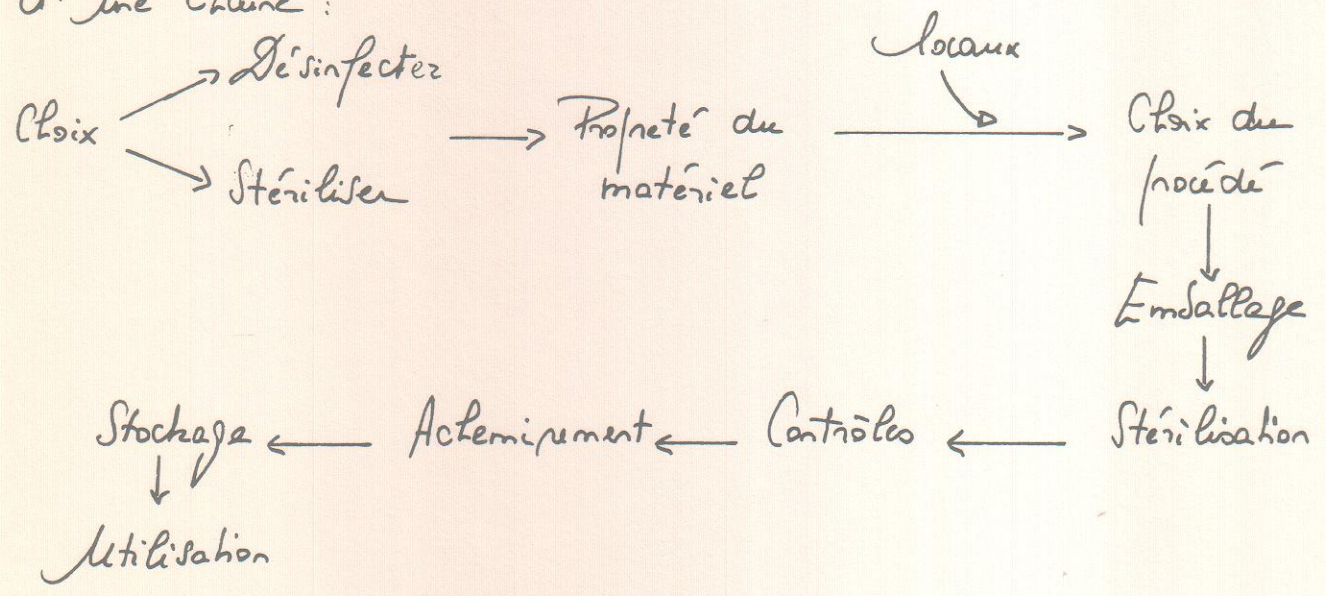 d'une chaîne :
Locaux
Désinfecter
Choix
Stériliser
Propreté du
matériel
Choix du
procédé
Emballage
Stérilisation
Contrôles
Acheminement
Stockage
Utilisation